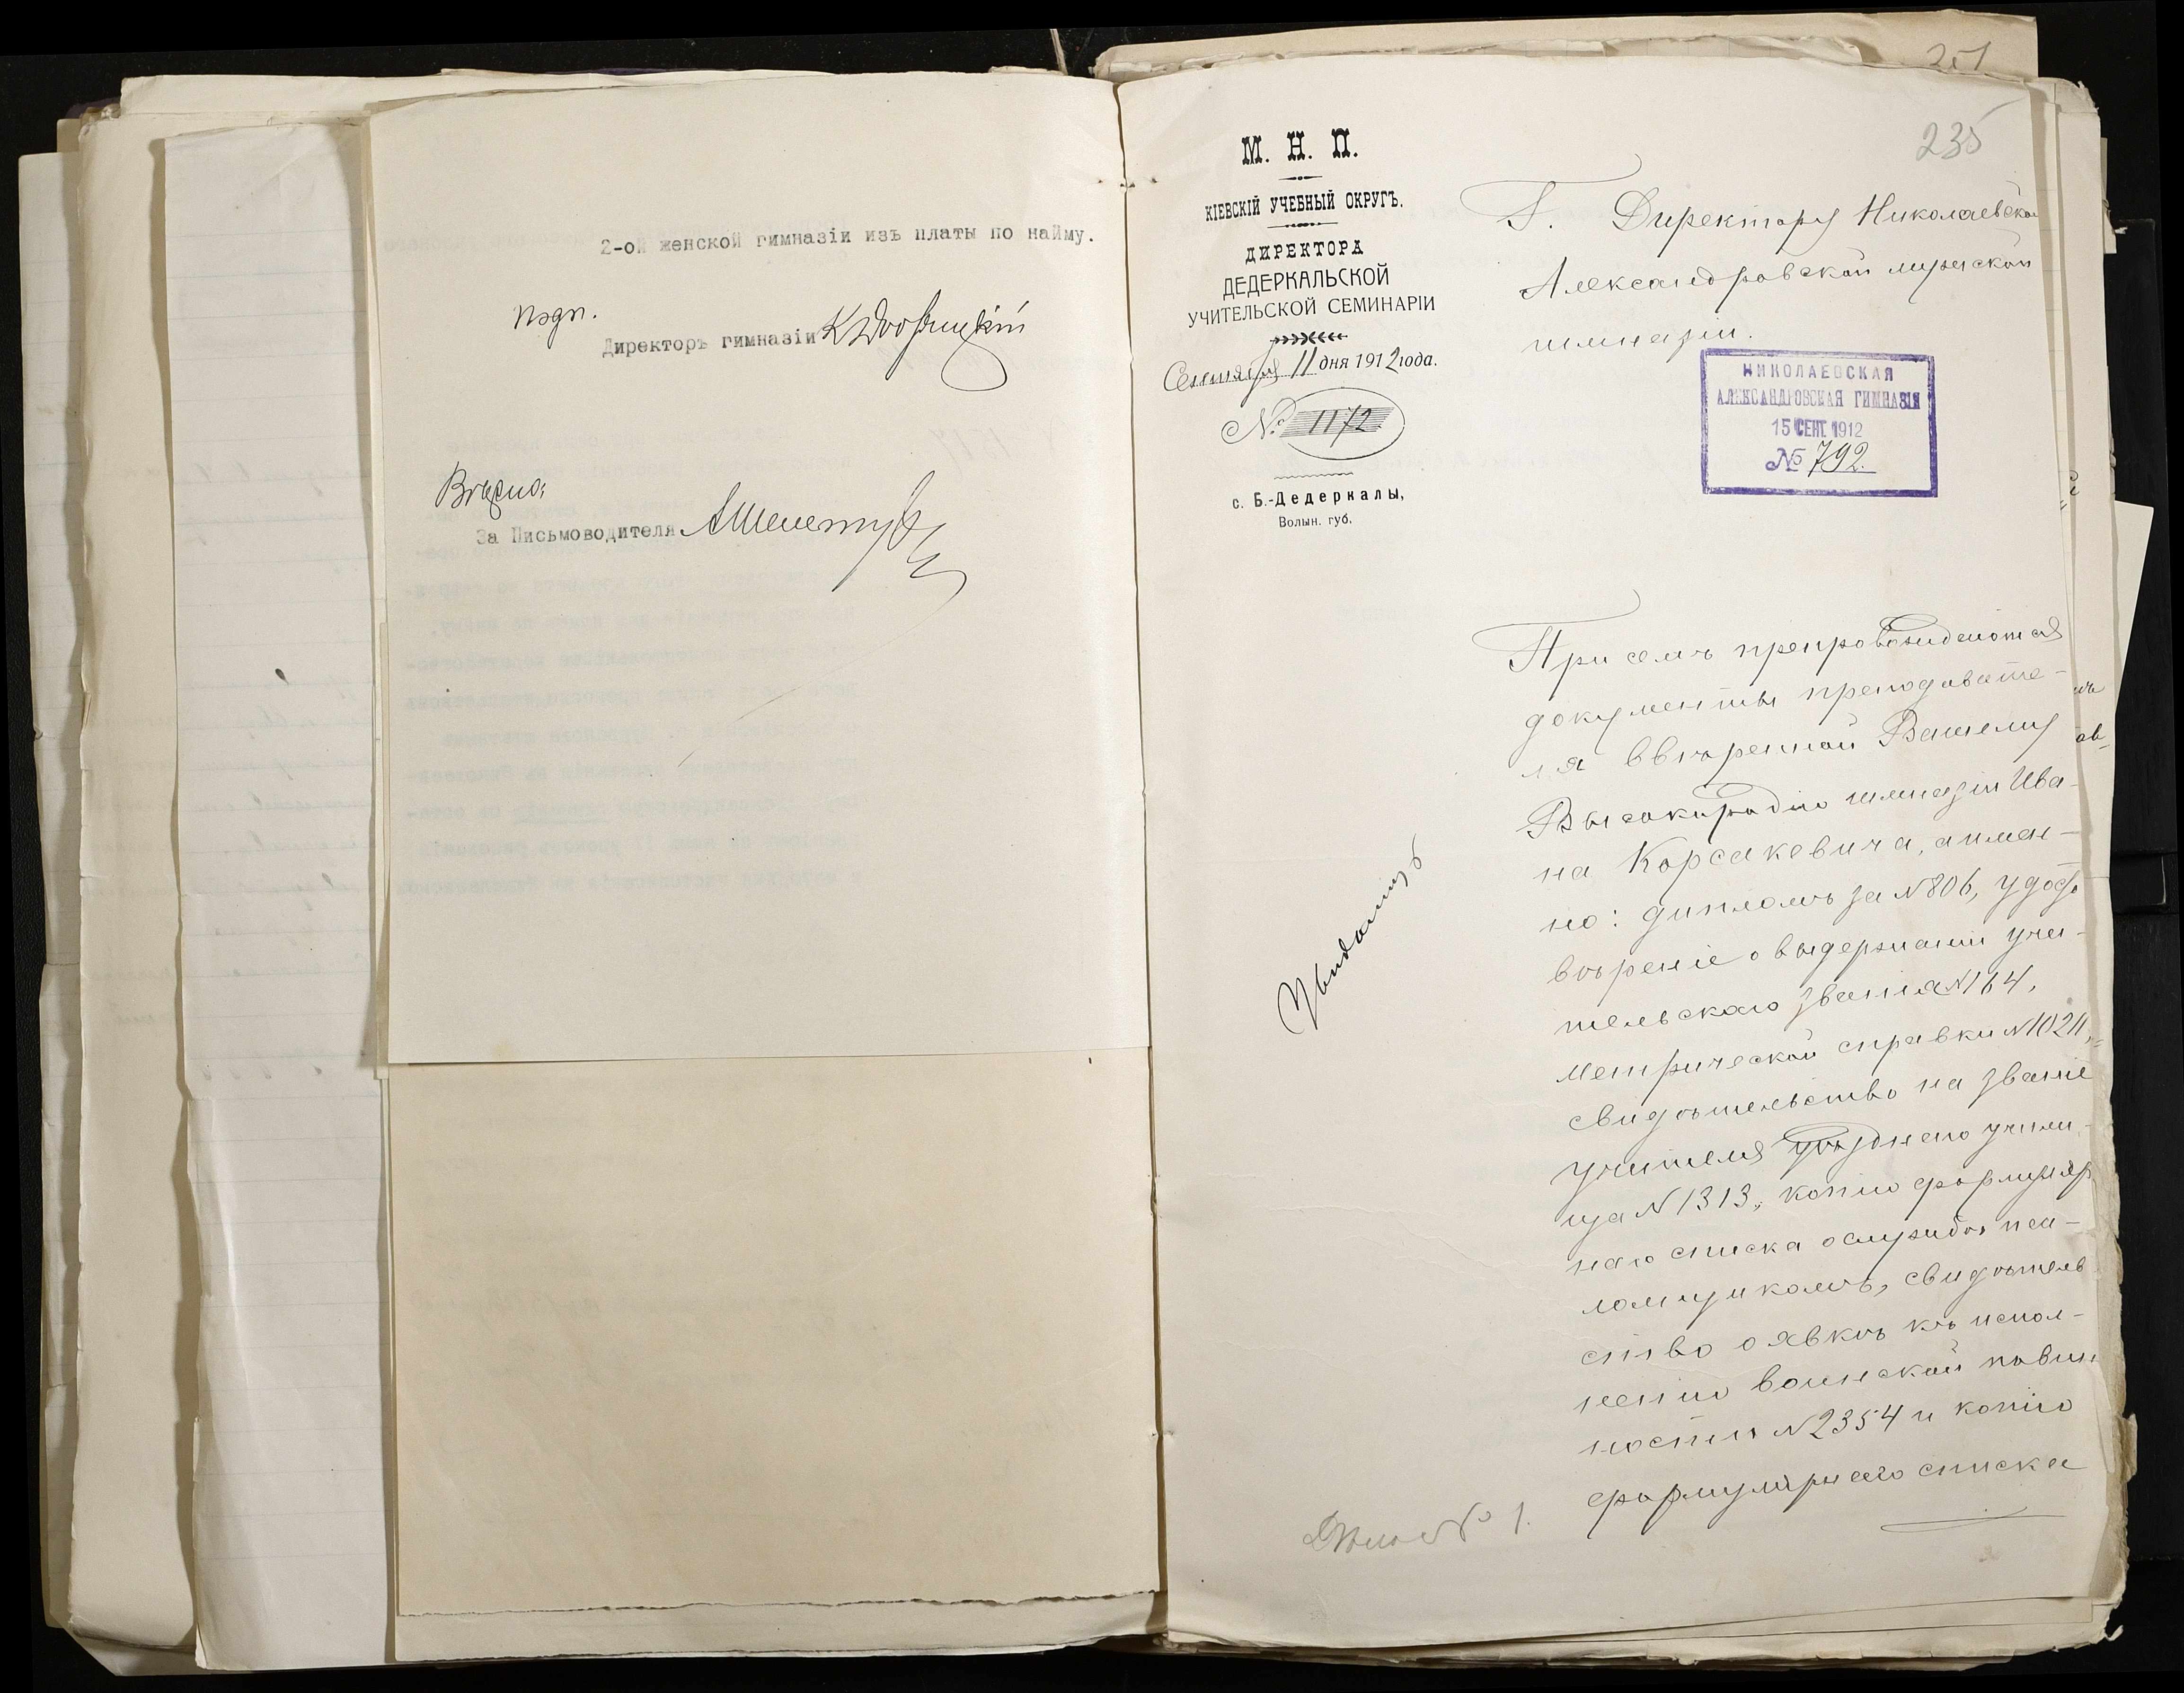 2-ой женской гимназіи изъ платы по найму.
подп.
Директоръ гимназіи
Вѣрно:
За Письмоводителя
251
235
М. Н. П.
КІЕВСКІЙ УЧЕБНЫЙ ОКРУГЪ.
ДИРЕКТОРА
ДЕДЕРКАЛЬСКОЙ
УЧИТЕЛЬСКОЙ СЕМИНАРІИ
Сентября 11 дня 1912 года.
№ 1172
с. Б.-Дедеркалы,
Волын. губ.
Г. Директору Николаевской
Александровской мужской
гимназіи.
НИКОЛАЕВСКАЯ
АЛЕКСАНДРОВСКАЯ ГИМНАЗІЯ
15 СЕНТ. 1912
№ 792.
При семъ препровождаются
документы преподавате-
ля ввѣренной Вашему
Высокородію гимназіи Ива-
на Корсакевича, а имен-
но: дипломъ за № 806, удосто
вѣреніе о выдержаніи учи-
тельскаго званія № 164,
метрической справки № 10211,
свидѣтельство на званіе
учителя уѣзднаго учили-
ща № 1313, копію формуляр
наго списка о службѣ пса-
ломщикомъ, свидѣтель
ство о явкѣ къ испол-
ненію воинской повин
ности № 2354 и копію
формулярнаго списка
Дѣло № 1.